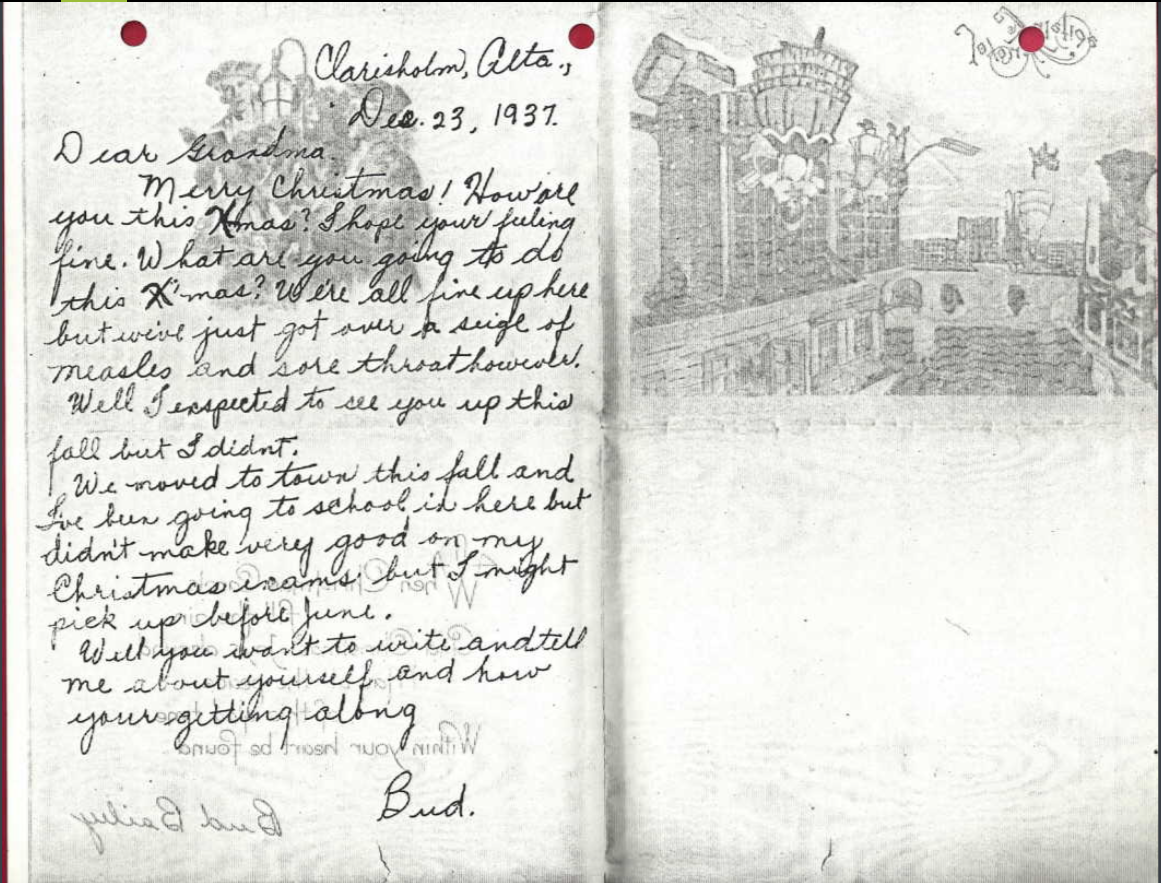 Clarisholm, Alta.,
Dec. 23, 1937.
Dear Grandma.
Merry Christmas! How are
you this Xmas? I hope your feeling
fine. What are you going to do
this X'mas? We're all fine up here
but we've just got over a seige of
measles and sore throat however.
Well I exspected to see you up this
fall but I didn't.
We moved to town this fall and
I've been going to school in here but
didn't make very good on my
Christmas exams, but I might
pick up before June.
Well you want to write and tell
me about yourself and how
your getting along
Bud.
When Christmas
Within your heart be found
Bud